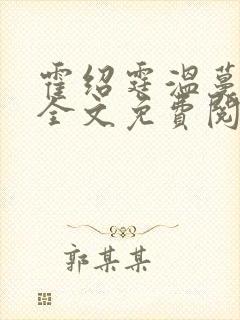 霍绍霆温蔓
全文免费阅
郭某某